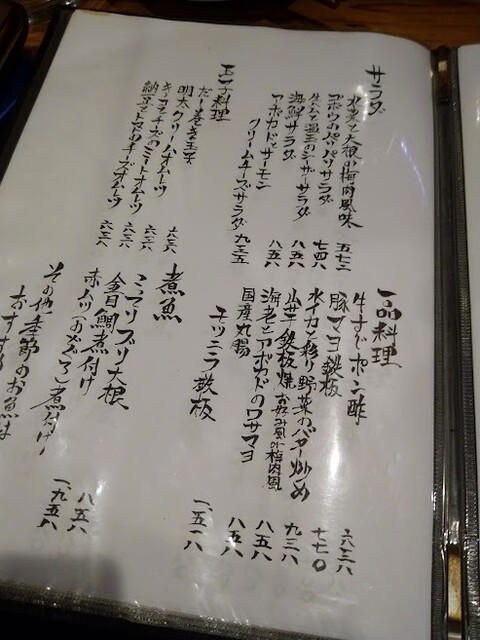 サラダ
水菜と大根の梅肉風味 五七二
ゴボウのパリパリサラダ 七四八
生ハムと温玉のシーザーサラダ 八五八
海鮮サラダ 八五八
アボカドとサーモン
クリームチーズサラダ 九三五
玉子料理
だし巻き玉子 六三八
明太クリームオムレツ 六三八
キーマチーズのミートオムレツ 六三八
納豆とトマトのチーズオムレツ 六三八
一品料理
牛すじポン酢 六三八
豚マヨ鉄板 七七〇
水イカと彩り野菜のバター炒め 九三八
山芋鉄板焼 お好み風or梅肉風 八五八
海老とアボカドのワサマヨ 八五八
国産丸腸
モツニラ鉄板 一、五一八
煮魚
ブリ大根 八五八
金目鯛煮付け 一、九五八
煮付け
その他季節のお魚は
おすすめ